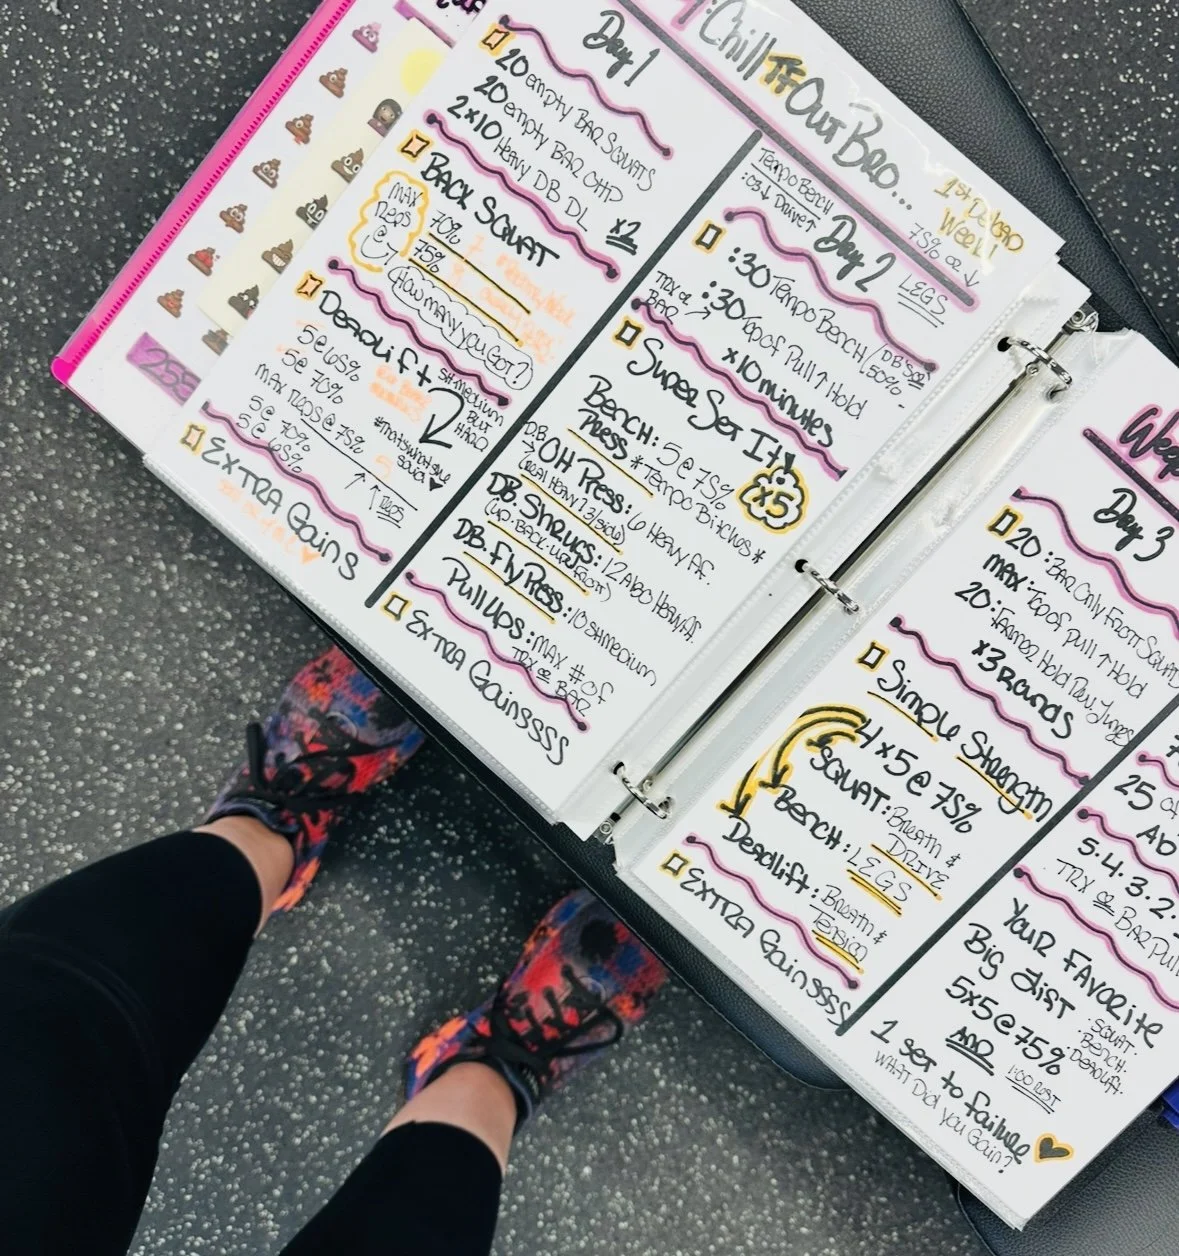 Chill TF Out Bro...
1st Deload
Week!
75% or ↓
Day 1
20 empty BAR SQUATS
20 empty BAR OHP
2x10 HEAVY DB DL
x2
BACK SQUAT
MAX
REPS
@
70%
75%
How many you got?
Deadlift
5@65%
5@70%
MAX REPS @ 75%
5@ 70%
5@ 65%
SHMEDIUM
BUT
HARD
#thatswhatshe
said ♥
↑ ↑ REPS
EXTRA Gains
Tempo Bench
:03↓ Drive↑
Day 2
LEGS
:30 Tempo Bench/
50%
TRY OR
BAR →
:30 Top of Pull↑ Hold
x10 minutes
Super Set It!
x5
Bench: 5@75%
Press *Tempo Bitches*
DB
→
OH Press: 6 Heavy AF.
DB Shrugs: 12 Also Heavy AF.
DB. Fly Press: 10 SHmedium
Pull Ups: MAX # OF
TRY OR BAR
EXTRA Gainssss
255
Day 3
20: BAR Only Front Squat
MAX: Top of Pull ↑ Hold
20: Farmer Hold
x3 Rounds
Simple Strength
4x5@75%
SQUAT: Breath &
DRIVE
Bench: LEGS
Deadlift: Breath &
Tension
EXTRA Gainssss
25
5.4.3.2.
TRY OR BAR
YOUR FAVORITE
Big
5x5@75%
AND
1:00 REST
.SQUAT.
.Bench.
.Deadlift.
1 set to failure
WHAT Did you Gain?